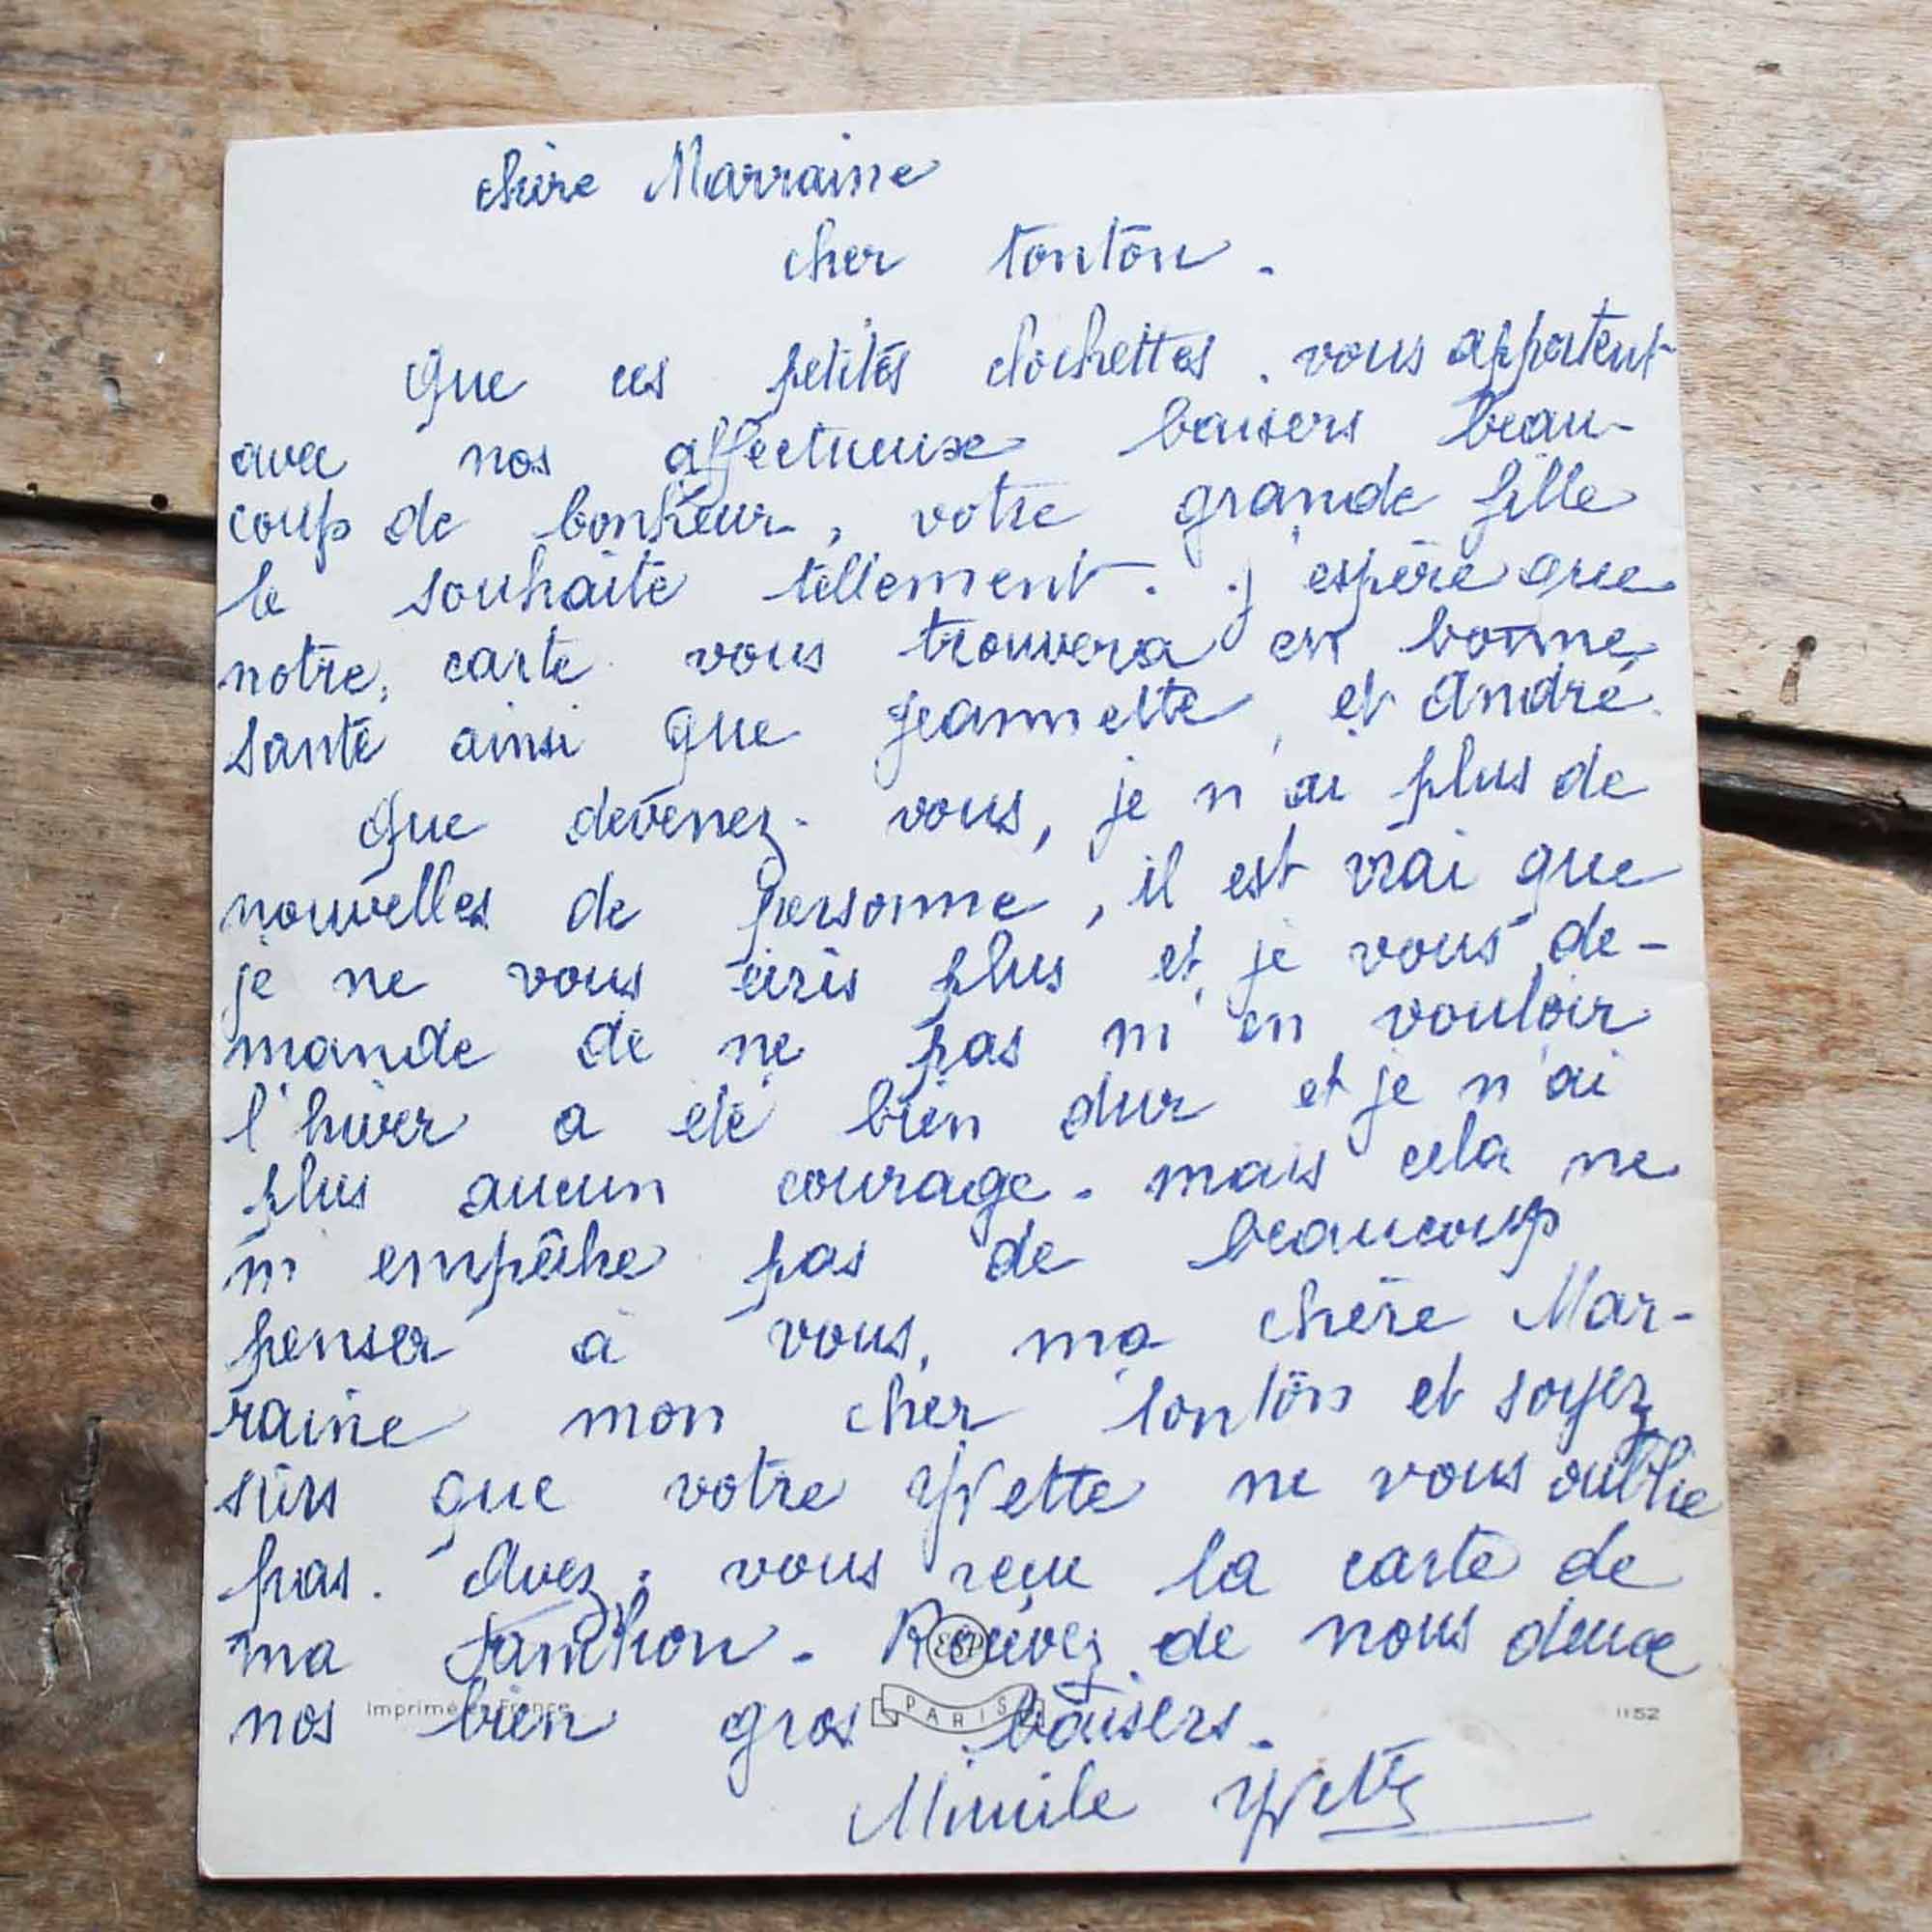 chère Marraine
cher tonton.
Que ces petites clochettes. vous apportent
avec nos affectueux baisers beau-
coup de bonheur, votre grande fille
le souhaite tellement. j'espère que
notre carte vous trouvera en bonne
santé ainsi que Jeannette, et André.
Que devenez-vous, je n'ai plus de
nouvelles de personne, il est vrai que
je ne vous écris plus et je vous de-
mande de ne pas m'en vouloir
l'hiver a été bien dur et je n'ai
plus aucun courage. mais cela ne
m'empêche pas de beaucoup
penser à vous, ma chère Mar-
raine mon cher tonton et soyez
sûrs que votre Yvette ne vous oublie
pas. Avez-vous reçu la carte de
ma Fanchon. Recevez de nous deux
nos bien gros baisers.
Mimile Yvette
Imprimé en France
PARIS
1152